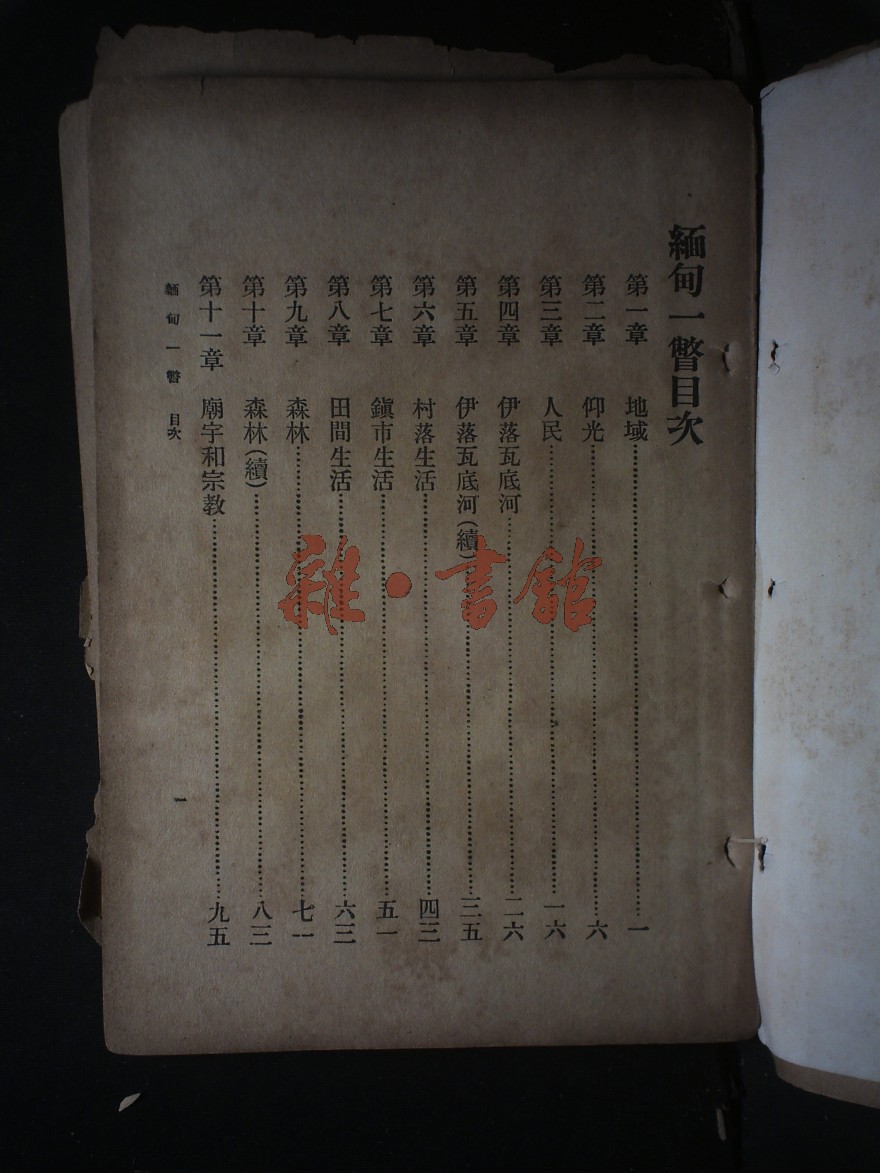 緬甸一瞥目次
第一章 地域 一
第二章 仰光 六
第三章 人民 一六
第四章 伊落瓦底河 二六
第五章 伊落瓦底河(續) 三五
第六章 村落生活 四三
第七章 鎮市生活 五一
第八章 田間生活 六三
第九章 森林 七一
第十章 森林(續) 八三
第十一章 廟宇和宗教 九五
緬甸一瞥 目次 一
雜·書館